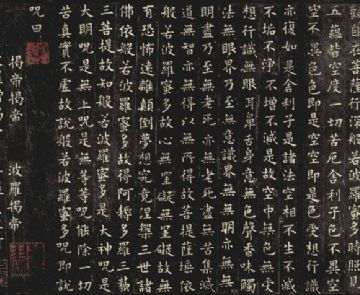 五蘊皆空度一切苦厄舍利子色不異空
空不異色色即是空空即是色受想行識
亦復如是舍利子是諸法空相不生不滅
不垢不淨不增不減是故空中無色無受
想行識無眼耳鼻舌身意無色聲香味觸
法無眼界乃至無意識界無無明亦無無
明盡乃至無老死亦無老死盡無苦集滅
道無智亦無得以無所得故菩提薩埵依
般若波羅蜜多故心無罣礙無罣礙故無
有恐怖遠離顛倒夢想究竟涅槃三世諸
佛依般若波羅蜜多故得阿耨多羅三藐
三菩提故知般若波羅蜜多是大神呪是
大明呪是無上呪是無等等呪能除一切
苦真實不虛故說般若波羅蜜多呪即說
呪曰
揭帝揭帝 波羅揭帝